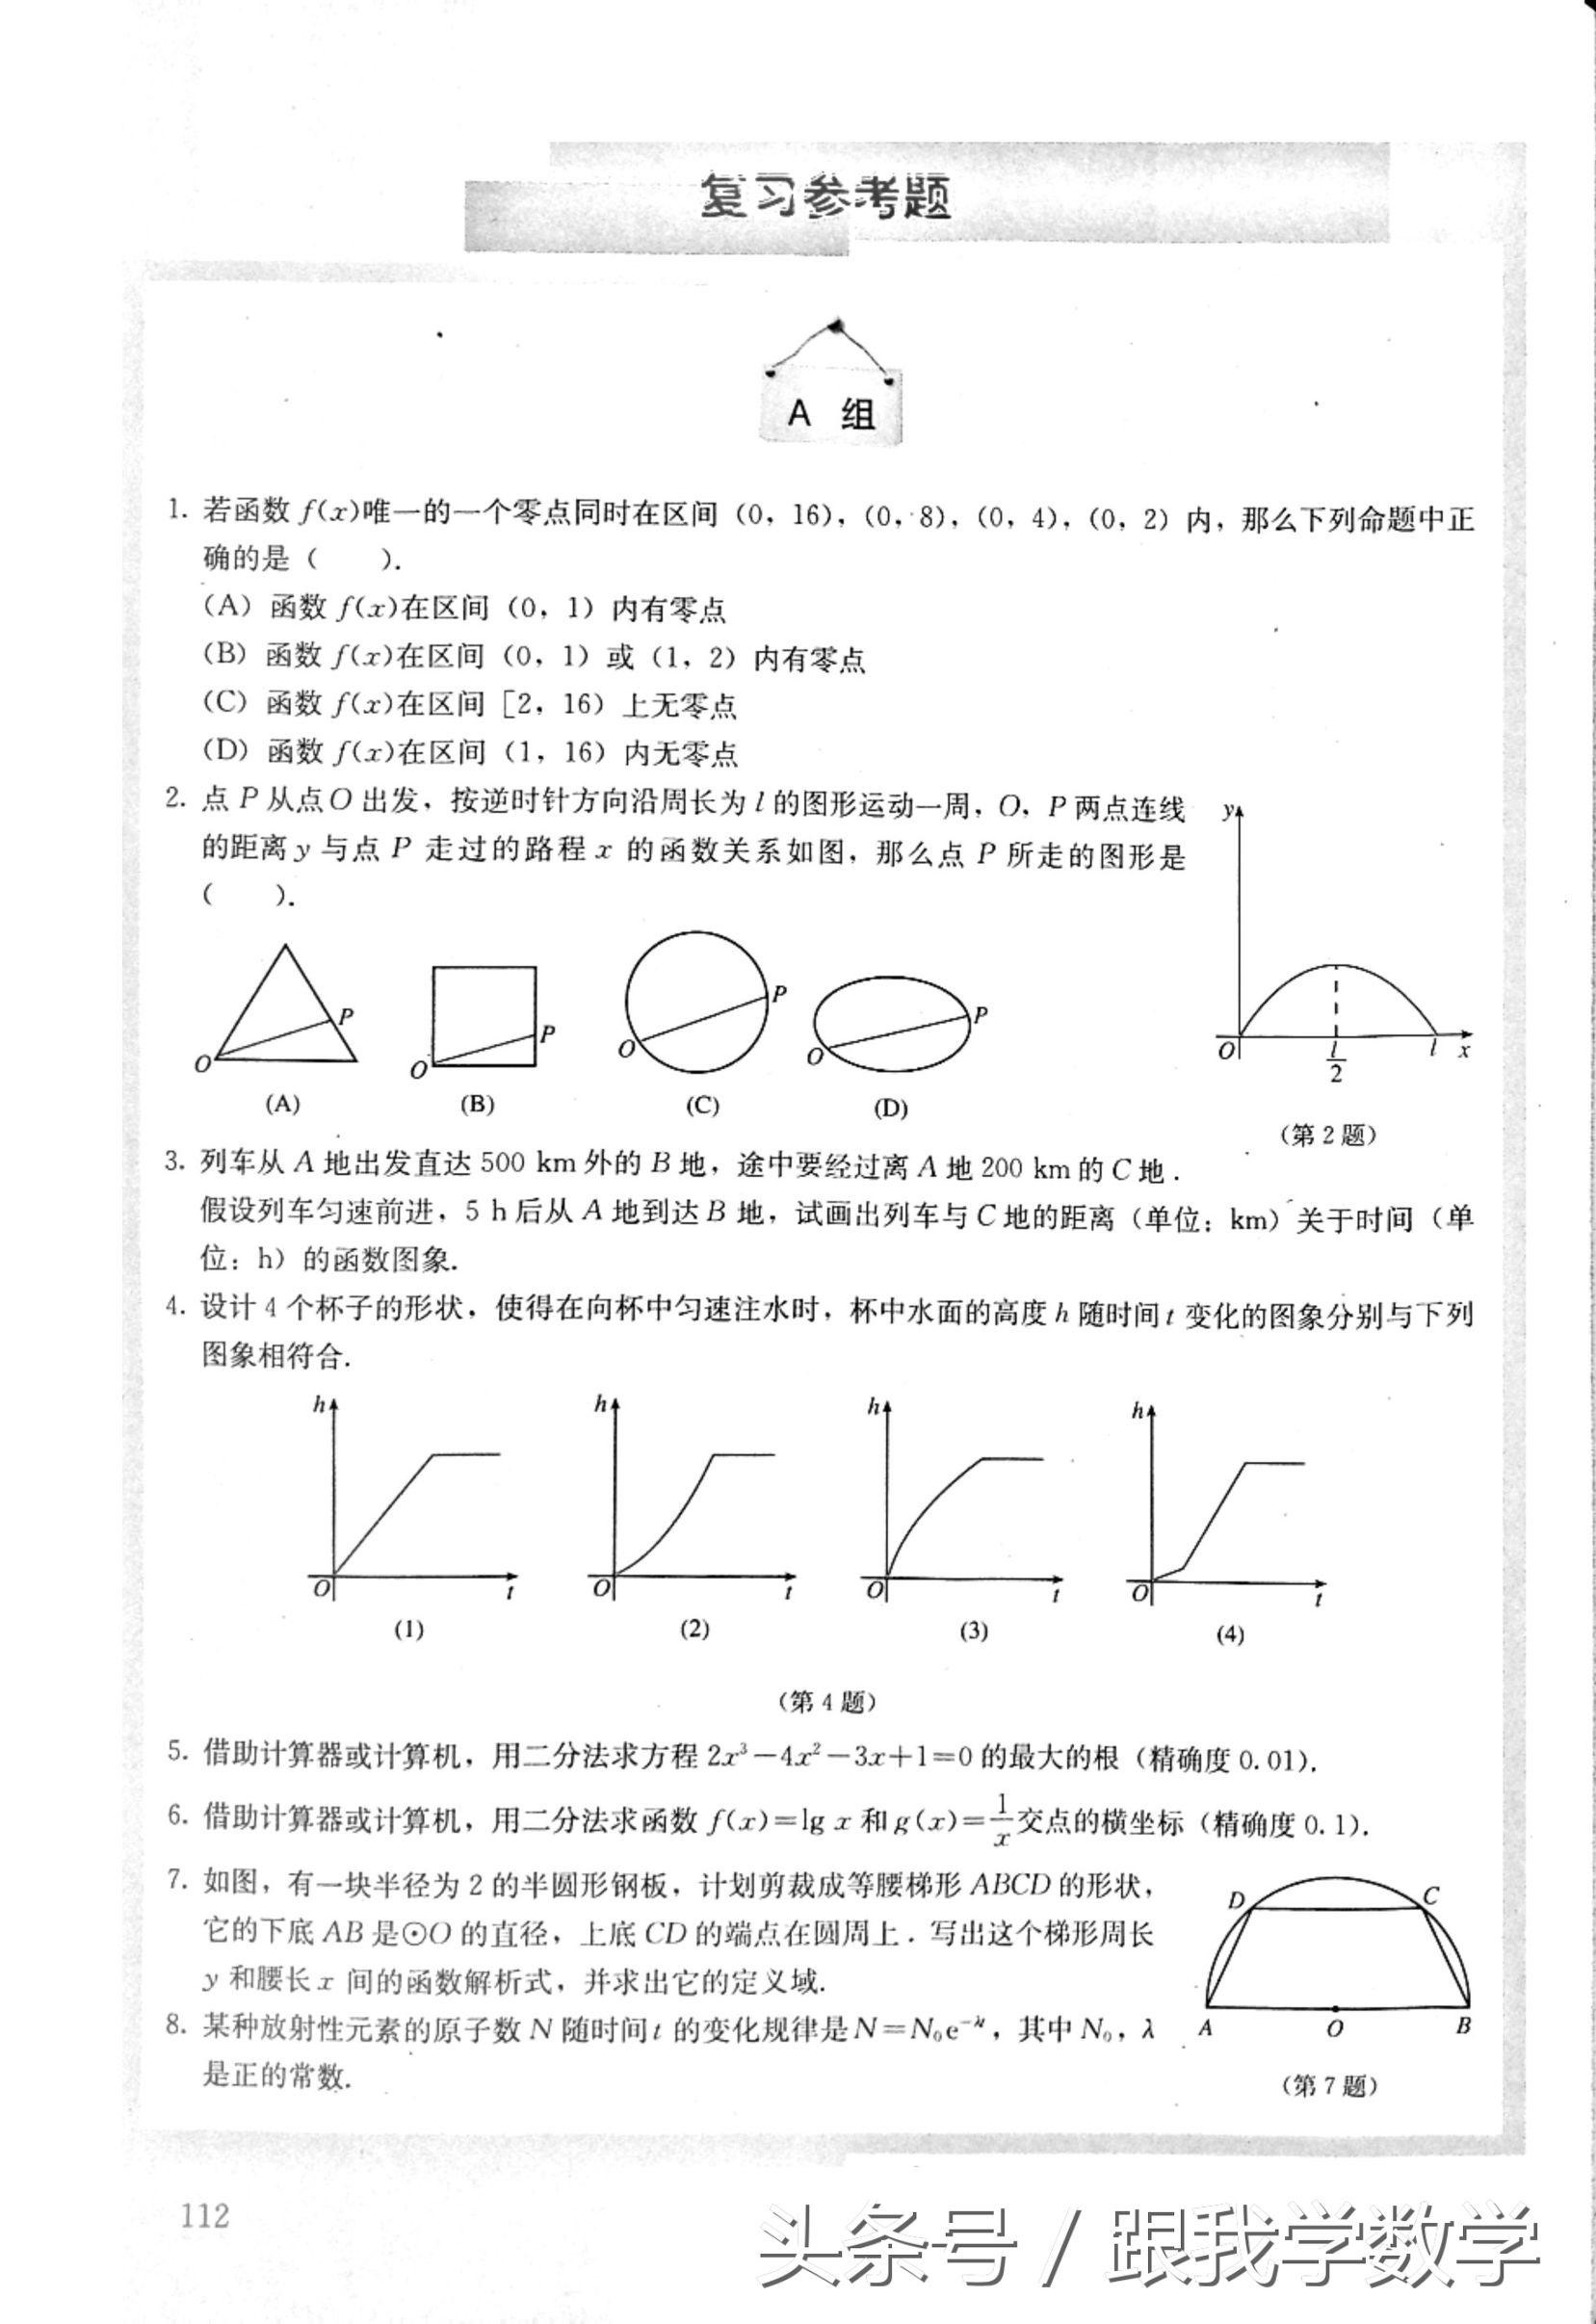 复习参考题
A 组
1. 若函数 f(x)唯一的一个零点同时在区间（0，16），（0，8），（0，4），（0，2）内，那么下列命题中正
确的是（　　）.
（A）函数 f(x)在区间（0，1）内有零点
（B）函数 f(x)在区间（0，1）或（1，2）内有零点
（C）函数 f(x)在区间［2，16）上无零点
（D）函数 f(x)在区间（1，16）内无零点
2. 点 P 从点O 出发，按逆时针方向沿周长为 l 的图形运动一周，O，P 两点连线
的距离 y 与点 P 走过的路程 x 的函数关系如图，那么点 P 所走的图形是
（　　）.
y
O
l/2
l
x
（第 2 题）
O P
(A)
O P
(B)
O P
(C)
O P
(D)
3. 列车从 A 地出发直达 500 km 外的 B 地，途中要经过离 A 地 200 km 的 C 地．
假设列车匀速前进，5 h 后从 A 地到达 B 地，试画出列车与 C 地的距离（单位：km）关于时间（单
位：h）的函数图象.
4. 设计 4 个杯子的形状，使得在向杯中匀速注水时，杯中水面的高度 h 随时间 t 变化的图象分别与下列
图象相符合.
h O t
(1)
h O t
(2)
h O t
(3)
h O t
(4)
（第 4 题）
5. 借助计算器或计算机，用二分法求方程 2x³－4x²－3x＋1＝0 的最大的根（精确度 0.01）.
6. 借助计算器或计算机，用二分法求函数 f(x)＝lg x 和 g(x)＝1/x 交点的横坐标（精确度 0.1）.
7. 如图，有一块半径为 2 的半圆形钢板，计划剪裁成等腰梯形 ABCD 的形状，
它的下底 AB 是⊙O 的直径，上底 CD 的端点在圆周上．写出这个梯形周长
y 和腰长 x 间的函数解析式，并求出它的定义域.
D C
A O B
（第 7 题）
8. 某种放射性元素的原子数 N 随时间 t 的变化规律是 N＝N₀e^(−λt)，其中 N₀，λ
是正的常数.
112
头条号 / 跟我学数学